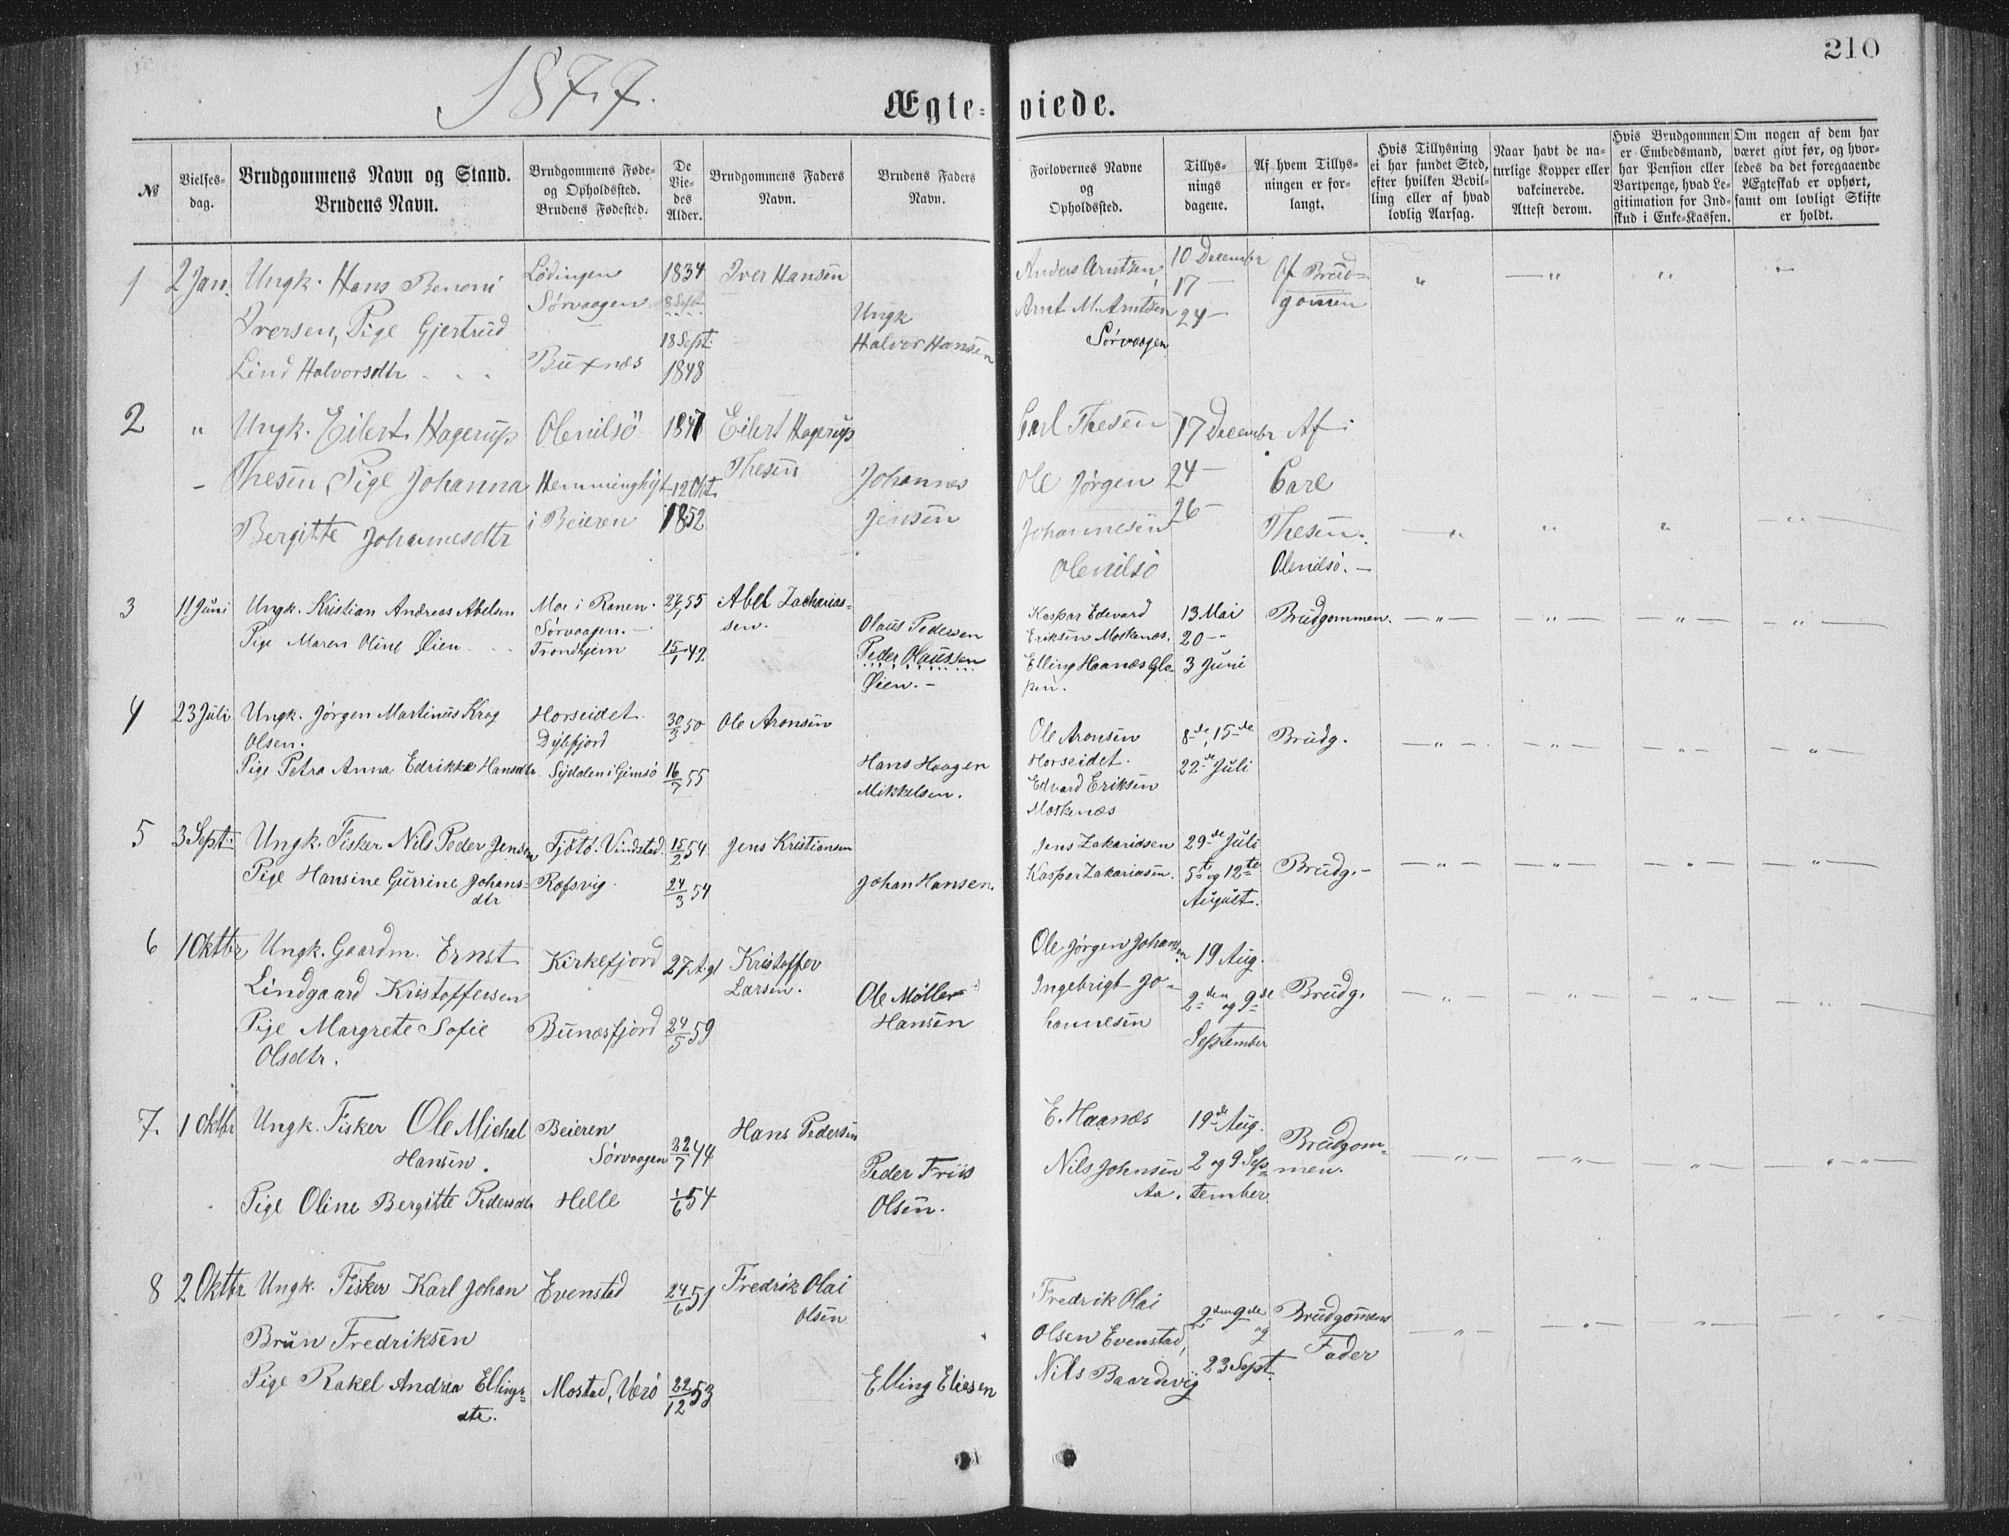 210
1877.
Ægte-viede.
№
Vielses-
dag.
Brudgommens Navn og Stand.
Brudens Navn.
Brudgommens Føde-
og Opholdssted.
Brudens Fødested.
De
Vie-
des
Alder.
Brudgommens Faders
Navn.
Brudens Faders
Navn.
Forlovernes Navne
og
Opholdssted.
Tillys-
nings
dagene.
Af hvem Tillys-
ningen er for-
langt.
Hvis Tillysning
ei har fundet Sted,
efter hvilken Bevil-
ling eller af hvad
lovlig Aarsag.
Naar havt de na-
turlige Kopper eller
vakcinerede.
Attest derom.
Hvis Brudgommen
er Embedsmand,
har Pension eller
Vartpenge, hvad Le-
gitimation for Ind-
skud i Enke-Kassen.
Om nogen af dem har
været givt før, og hvor-
ledes da det foregaaende
Ægteskab er ophørt,
samt om lovligt Skifte
er holdt.
1
2 Jan.
Ungk. Hans Benoni
Iversen, Pige Gjertrud
Lind Halvorsdtr
Lødingen
Sørvaagen
Buxnæs
1834
8 Sept
18 Sept.
1848
Iver Hansen
Ungk
Halvor Hansen
Anders Arntsen
Arnt M. Arntsen
Sørvaagen
10 December
17 —
24 —
Af Brud-
gomen
2
"
Ungk. Eilert Hagerup
Thesen, Pige Johanna
Bergitte Johannesdtr
Olenilsö
i Beieren
1847
12 Okt.
1852
Eilert Hagerup
Thesen
Johannes
Jensen
Carl Thesen
Ole Jørgen
Johannesen
Olenilsö
17 Decembr
24 —
26 —
Af
Carl
Thesen.
Olenilsö. —
3
11 Juni
Ungk. Kristian Andreas Abelsen
Pige Maren Oline Øien
Moe i Ranen.
Sørvaagen. —
Trondhjem
55
15/1 42
Abel Zacharias-
sen.
Olaus Pedersen
Peder Olaussen
Øien. —
Kaspar Edevard
Eriksen Moskenæs.
Elling Haanæs Gla-
pen.
13 Mai
20 —
3 Juni
Brudgommen.
4
23 Juli
Ungk. Jörgen Martinus Krog
Olsen.
Pige Petra Anna Edrikke Hansdtr.
Horseidet.
Dybfjord
Sydalen i Gimsö
30/3 50
16/7 55
Ole Aronsen
Hans Haagen
Mikkelsen.
Ole Aronsen
Horseidet.
Edvard Eriksen
Moskenæs
8de, 15de
22de Juli
Brudg.
5
3 Sept.
Ungk. Fisker Nils Peder Jensen
Pige Hansine Gurine Johans-
dtr
Tjøtø. Vindstad.
Refsvig.
15/2 54
24/3 54
Jens Kristiansen
Johan Hansen.
Jens Zakariasen
Kaspar Zakariasen.
29de Juli
5te og 12te
August.
Brudg. —
6
1 Oktbr
Ungk. Gaardm. Ernst
Lindgaard Kristoffersen
Pige Margrete Sofie
Olsdtr.
Kirkefjord
Bunæsfjord
24/5 59
Kristoffer
Larsen.
Ole Møller
Hansen
Ole Jørgen Johansen
Ingebrigt Jo-
hannesen
19 Aug.
2den og 9de
September
Brudg.
7.
1 Oktbr
Ungk. Fisker Ole Michal
Hansen.
Pige Oline Bergitte Pedersdtr
Beieren
Sørvaagen
Helle
22/7 44
1/6 54
Hans Pedersen
Peder Friis
Olsen.
E. Haanæs
Nils Johnsen
Aa.
19de Aug.
2 og 9 Sep-
tember.
Brudgom-
men.
8
2 Oktbr
Ungk. Fisker Karl Johan
Brun Fredriksen
Pige Rakel Andrea Ellings-
dtr.
Evenstad
Mostad, Værö
24/6 51
22/12 53
Fredrik Olai
Olsen
Elling Eliesen
Fredrik Olai
Olsen Evenstad,
Nils Baardsvig
2den 9de
og
23 Sept.
Brudgomens
Fader